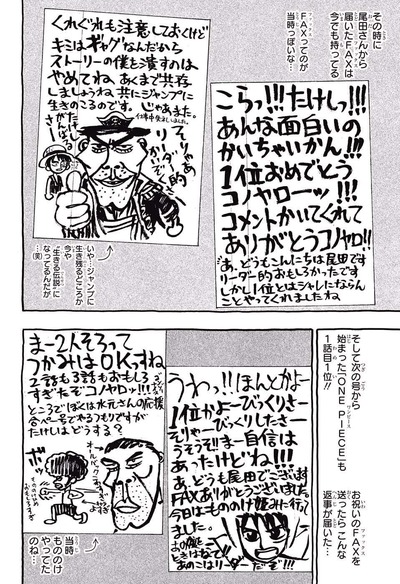 その時に
尾田さんから
届いたFAXは
今でも持ってる
FAXってのが
当時っぽいな…
こらっ!!!たけしっ!!!
あんな面白いの
かいちゃいかん!!!
1位おめでとう
コノヤローッ!!!
コメントかいてくれて
ありがとうコノヤロ!!
あ、どうもこんにちは尾田です
リーダー的おもしろかったです
しかし1位とはシャレにならん
ことやってくれましたね
くれぐれも注意しておくけど
キミはギャグなんだから
ストーリーの僕を潰すのは
やめてね、あくまで共存
しましょうね、共にジャンプに
生きのこるのです。じゃあまた。
仕事中失礼しました。
リーダー的
いや…ジャンプに
生き残るどころか
今や
"生きる伝説"に
なってるんだが
…(笑)
そして次の号から
始まった「ONE PIECE」も
1話目1位!!
お祝いのFAXを
送ったらこんな
返事が届いた…
うわっ!!ほんとかよー
1位かよーびっくりさー
そりゃーびっくりしたさー
うそうそ!!まー自信は
あったけどね!!!
あ、どうも尾田でございます
FAXありがとうございました。
今日はもののけ姫みに行って
ました。
あのこはリーダーだ!!
まー2人そろって
つかみはOKっすね
2話も3話もおもしろ
すぎたぞコノヤロー
ところでぼくは水元さんの応援
合ペー号でやるつもりですが
たけしはどうする?
オールバック
ボッ
当時
もののけ
やってた
のね…